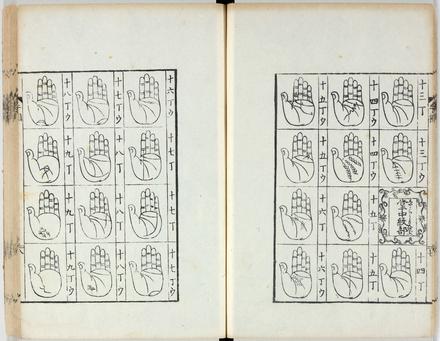 十三丁
十三丁ウ
掌中紋部
十四丁
十四丁ウ
十四丁ウ
十五丁
十五丁
十五丁ウ
十五丁ウ
十六丁
十六丁ウ
十六丁ウ
十七丁
十七丁
十七丁ウ
十七丁ウ
十八丁
十八丁
十八丁ウ
十八丁ウ
十九丁
十九丁
十九丁ウ